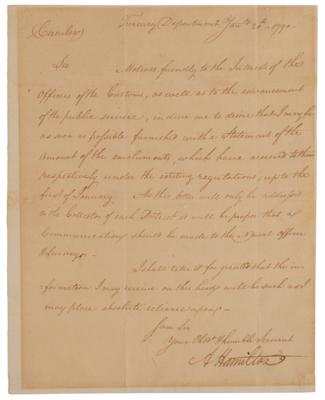 (Circular)
Treasury Department Jany 20th 1790.
Sir
Motives friendly to the Interests of the
Officers of the Customs, as well as to the advancement
of the public service, induce me to desire that I may be
as soon as possible furnished with a Statement of the
Amount of the emoluments, which have accrued to them
respectively under the existing regulations, up to the
first of January. As this letter will only be addressed
to the Collector of each District it will be proper that a
Communication should be made to the Naval Officer
& Surveyor.
I shall take it for granted that the in-
formation I may receive on this head will be such as I
may place absolute reliance upon.
I am Sir
Your Obedt & humble Servant
A Hamilton